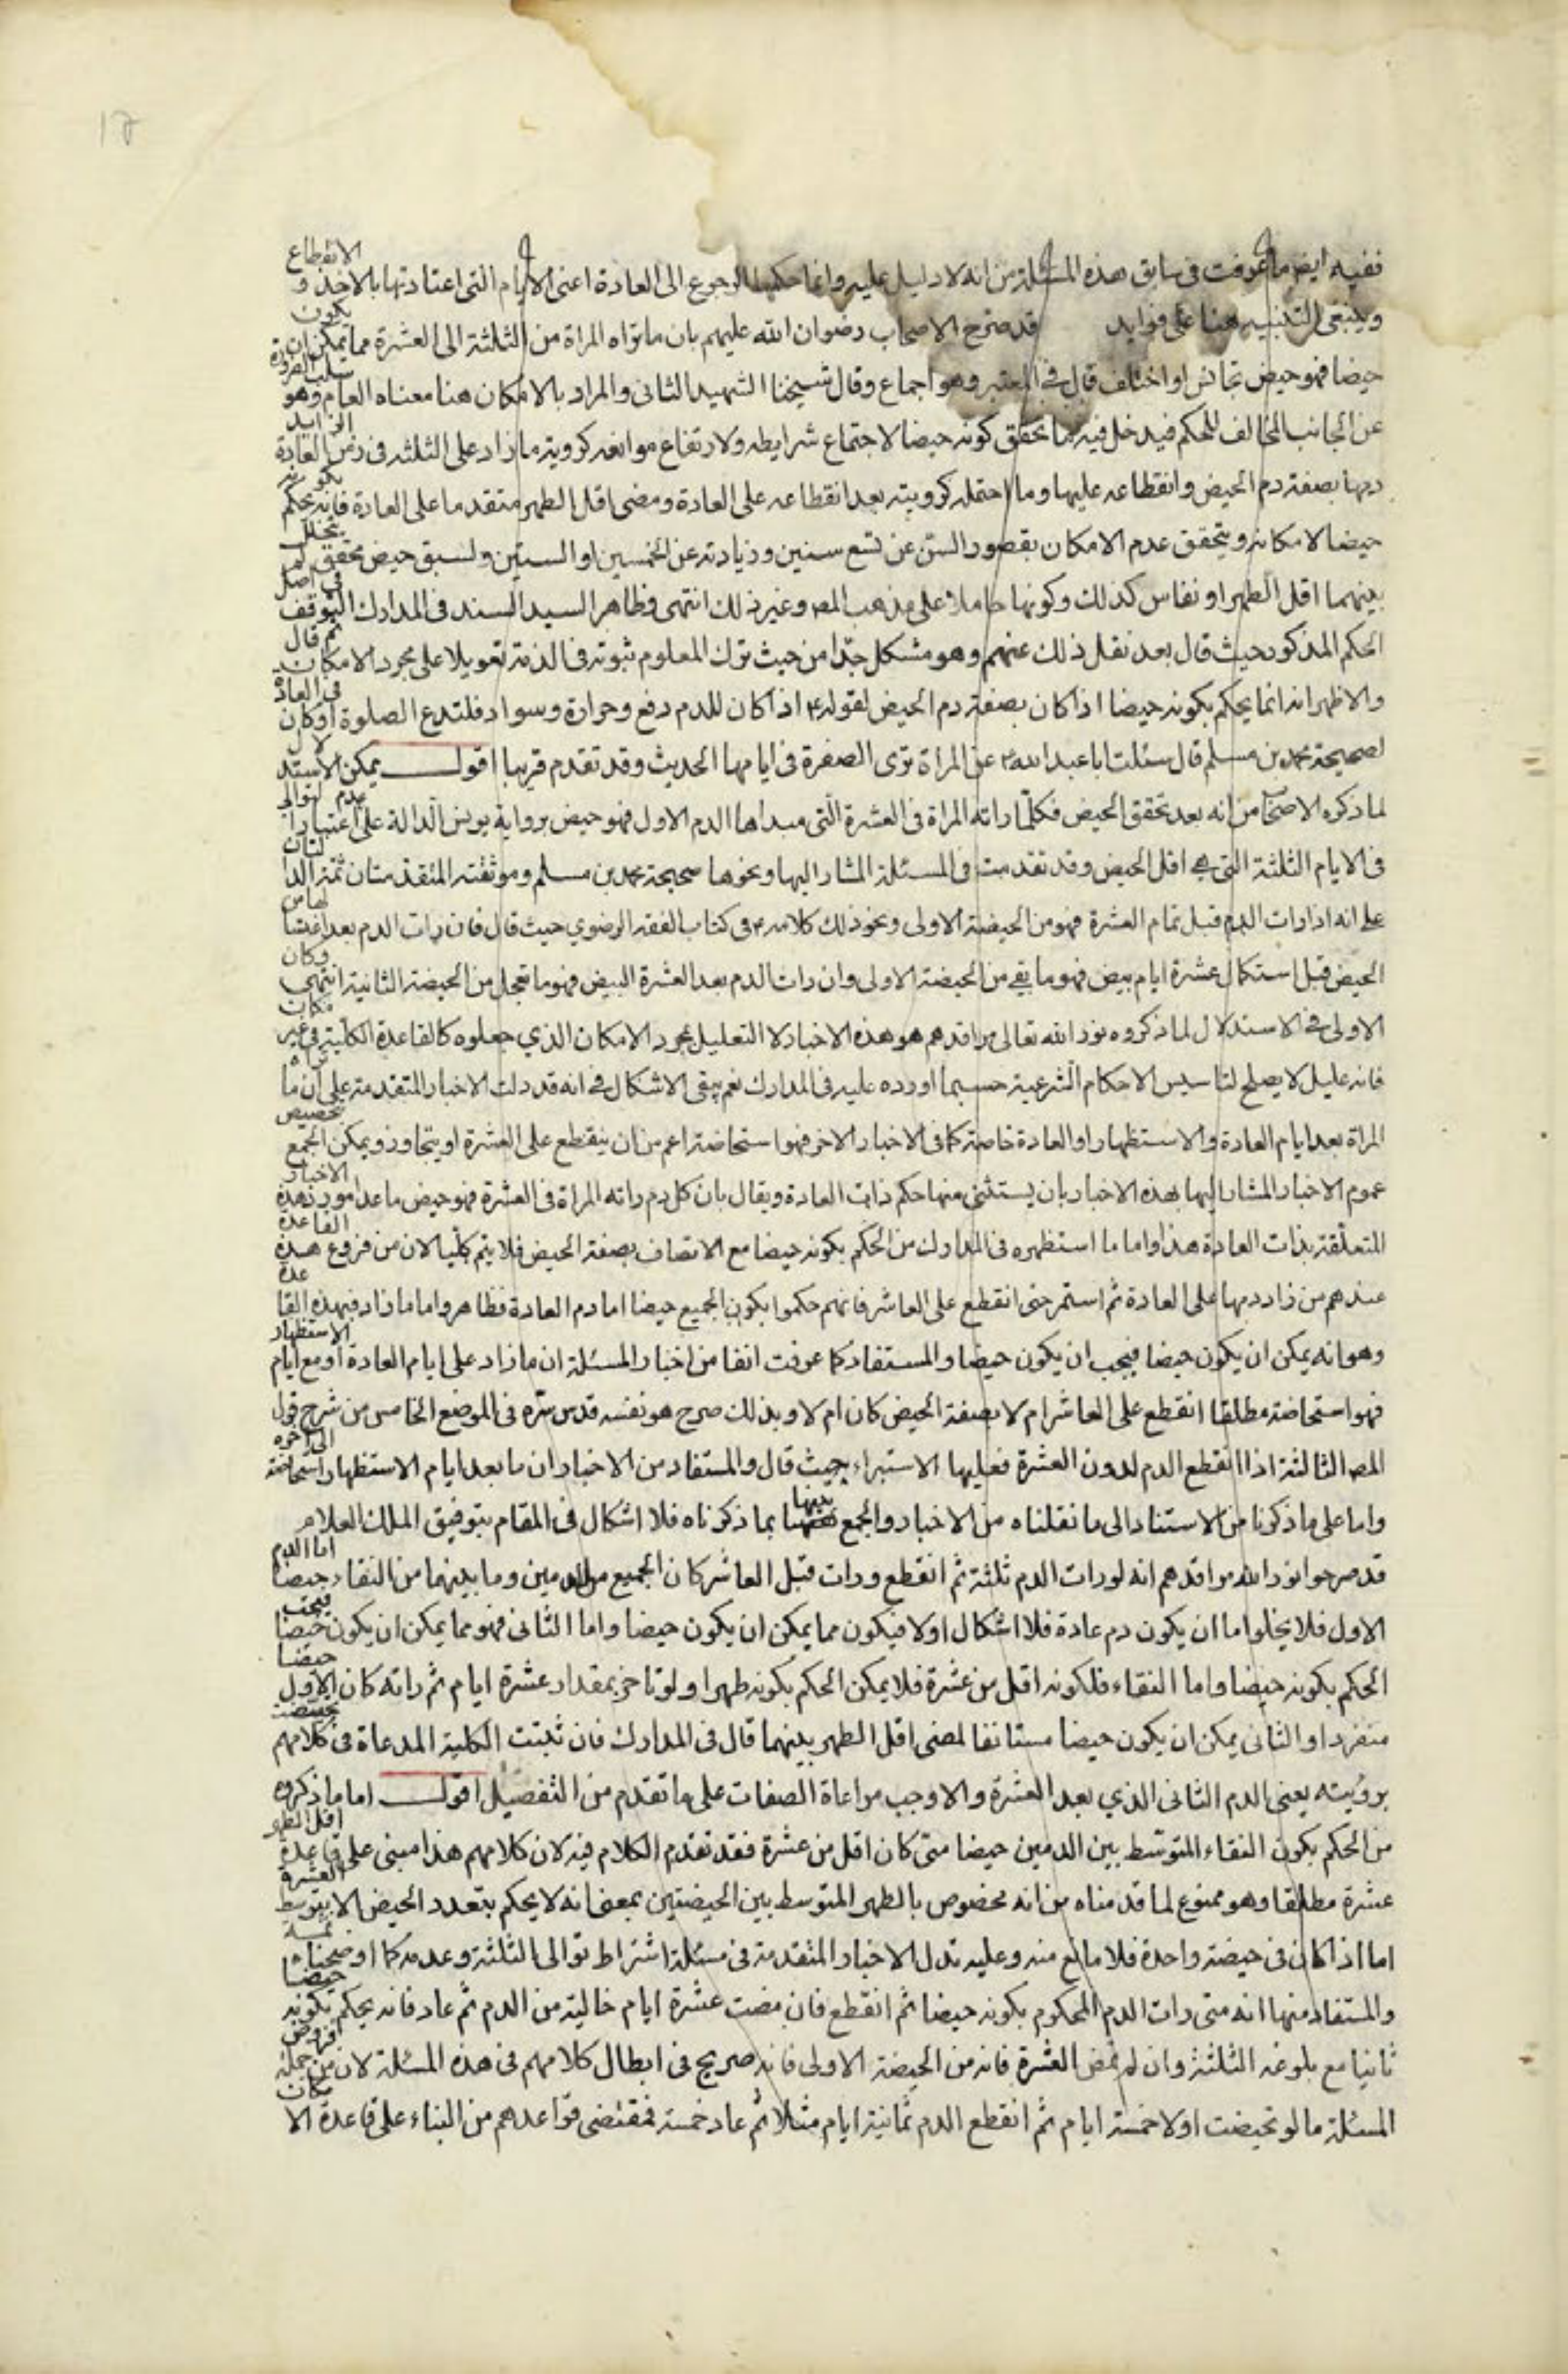 ففيه ايضا ما عرفت في سابق هذه المسئلة من انه لا دليل عليه وانما حكمها الرجوع الى العادة اعنى الايام التي اعتادتها بالاخذ و الانقطاع
وينبغي التنبيه هنا على فوايد قد صرح الاصحاب رضوان الله عليهم بان ما تراه المراة من الثلثة الى العشرة مما يمكن ان يكون
حيضا فهو حيض تجانس او اختلف قال في المعتبر وهو اجماع وقال شيخنا الشهيد الثاني والمراد بالامكان هنا معناه العام وهو سلب الضرورة
عن الجانب المخالف للحكم فيدخل فيه ما تحقق كونه حيضا لاجتماع شرايطه ولارتفاع موانعه كروية ما زاد على الثلثه في زمن العادة الزايد
دمها بصفة دم الحيض وانقطاعه عليها وما احتمله كرويته بعد انقطاعه على العادة ومضى اقل الطهر متقدما على العادة فانه يحكم بكونه
حيضا لامكانه ويتحقق عدم الامكان بقصور السن عن تسع سنين وزيادته عن الخمسين او الستين ولسبق حيض محقق لم يتخلل
بينهما اقل الطهر او نفاس كذلك وكونها حاملا على مذهب المص وغير ذلك انتهى وظاهر السيد السند في المدارك التوقف في اصل
الحكم المذكور حيث قال بعد نقل ذلك عنهم وهو مشكل جدا من حيث ترك المعلوم ثبوته في الذمة تعويلا على مجرد الامكان ثم قال
والاظهر انه انما يحكم بكونه حيضا اذا كان بصفة دم الحيض لقوله ع اذا كان للدم دفع وحرارة وسواد فلتدع الصلوة او كان في العادة
لصحيحة محمد بن مسلم قال سئلت ابا عبد الله ع عن المراة ترى الصفرة في ايامها الحديث وقد تقدم قريبا اقول يمكن الاستدلال
لما ذكره الاصحاب من انه بعد تحقق الحيض فكلما راته المراة في العشرة التي مبداها الدم الاول فهو حيض برواية يونس الدالة على اعتبار عدم توالي
في الايام الثلثة التي هي اقل الحيض وقد تقدمت في المسئلة المشار اليها ونحوها صحيحة محمد بن مسلم وموثقته المتقدمتان ثمة الدالتان
على انه اذا رات الدم قبل تمام العشرة فهو من الحيضة الاولى ونحو ذلك كلامه ع في كتاب الفقه الرضوي حيث قال فان رات الدم بعد اغتسالها من
الحيض قبل استكمال عشرة ايام بيض فهو ما بقي من الحيضة الاولى وان رات الدم بعد العشرة البيض فهو ما تعجل من الحيضة الثانية انتهى وكان
الاولى في الاستدلال لما ذكروه نور الله تعالى مراقدهم هو هذه الاخبار لا التعليل بمجرد الامكان الذي جعلوه كالقاعدة الكلية في غير مكان
فانه عليل لا يصلح لتاسيس الاحكام الشرعية حسبما اورده عليه في المدارك نعم يبقى الاشكال في انه قد دلت الاخبار المتقدمة على ان ما تراه
المراة بعد ايام العادة والاستظهار او العادة خاصة كما في الاخبار الاخر فهو استحاضة اعم من ان ينقطع على العشرة او يتجاوز ويمكن الجمع تخصيص
عموم الاخبار المشار اليها بهذه الاخبار بان يستثنى منها حكم ذات العادة ويقال بان كل دم راته المراة في العشرة فهو حيض ما عدا مورد هذه الاخبار
المتعلقة بذات العادة هذا واما ما استظهره في المدارك من الحكم بكونه حيضا مع الاتصاف بصفة الحيض فلا يتم كليا لان من فروع هذه القاعدة
عندهم من زاد دمها على العادة ثم استمر حتى انقطع على العاشر فانهم حكموا بكون الجميع حيضا اما دم العادة فظاهر واما ما زاد فبهذه القاعدة
وهو انه يمكن ان يكون حيضا فيجب ان يكون حيضا والمستفاد كما عرفت انفا من اخبار المسئلة ان ما زاد على ايام العادة او مع ايام الاستظهار
فهو استحاضة مطلقا انقطع على العاشر ام لا بصفة الحيض كان ام لا وبذلك صرح هو نفسه قدس سره في الموضع الخامس من شرح قول
المص الثالثة اذا انقطع الدم لدون العشرة فعليها الاستبراء حيث قال والمستفاد من الاخبار ان ما بعد ايام الاستظهار استحاضة الى اخره
واما على ما ذكرنا من الاستناد الى ما نقلناه من الاخبار والجمع بينها بما ذكرناه فلا اشكال في المقام بتوفيق الملك العلام
قد صرحوا نور الله مراقدهم انه لو رات الدم ثلثة ثم انقطع ورات قبل العاشر كان الجميع من الدمين وما بينهما من النقاء حيضا اما الدم
الاول فلا يخلو اما ان يكون دم عادة فلا اشكال او لا فيكون مما يمكن ان يكون حيضا واما الثاني فهو مما يمكن ان يكون حيضا فيجب
الحكم بكونه حيضا واما النقاء فلكونه اقل من عشرة فلا يمكن الحكم بكونه طهرا ولو تاخر بمقدار عشرة ايام ثم راته كان الاول حيضا
منفردا والثاني يمكن ان يكون حيضا مستانفا لمضى اقل الطهر بينهما قال في المدارك فان ثبتت الكلية المدعاة في كلامهم تحيضت
برؤيته يعنى الدم الثاني الذي بعد العشرة والا وجب مراعاة الصفات على ما تقدم من التفصيل اقول اما ما ذكروه
من الحكم بكون النقاء المتوسط بين الدمين حيضا متى كان اقل من عشرة فقد تقدم الكلام فيه لان كلامهم هذا مبنى على قاعدة اقل الطهر
عشرة مطلقا وهو ممنوع لما قدمناه من انه مخصوص بالطهر المتوسط بين الحيضتين بمعنى انه لا يحكم بتعدد الحيض الا بتوسط العشرة
اما اذا كان في حيضة واحدة فلا مانع منه وعليه تدل الاخبار المتقدمة في مسئلة اشتراط توالى الثلثة وعدمه كما اوضحناه ثمة
والمستفاد منها انه متى رات الدم المحكوم بكونه حيضا ثم انقطع فان مضت عشرة ايام خالية من الدم ثم عاد فانه يحكم بكونه حيضا
ثانيا مع بلوغه الثلثة وان لم تمض العشرة فانه من الحيضة الاولى فانه صريح في ابطال كلامهم في هذه المسئلة لان من جملة فروض
المسئلة ما لو تحيضت اولا خمسة ايام ثم انقطع الدم ثمانية ايام مثلا ثم عاد خمسة فمقتضى قواعدهم من البناء على قاعدة الامكان